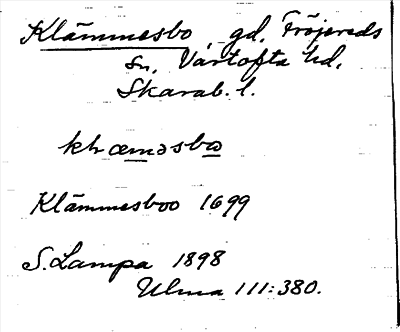 Klämmesbo, gd, Fröjereds
sn, Vartofta hd,
Skarab. l.
klræməsbo
Klämmesboo 1699
S. Lampa 1898
Ulma 111:380.